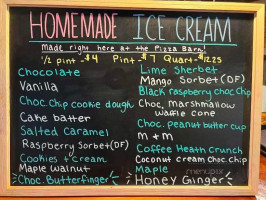 HOMEMADE ICE CREAM
Made right here at the Pizza Barn!
1/2 pint - $4 Pint - $7 Quart - $12.25
Chocolate
Vanilla
Choc. Chip cookie dough
Cake batter
Salted Caramel
Raspberry Sorbet (DF)
Cookies + cream
Maple Walnut
Choc. Butterfinger
Lime Sherbet
Mango Sorbet (DF)
Black raspberry choc Chip
Choc, marshmallow
waffle cone
Choc. peanut butter cup
m + m
Coffee Heath Crunch
Coconut cream Choc. Chip
Maple
Honey Ginger
menupix